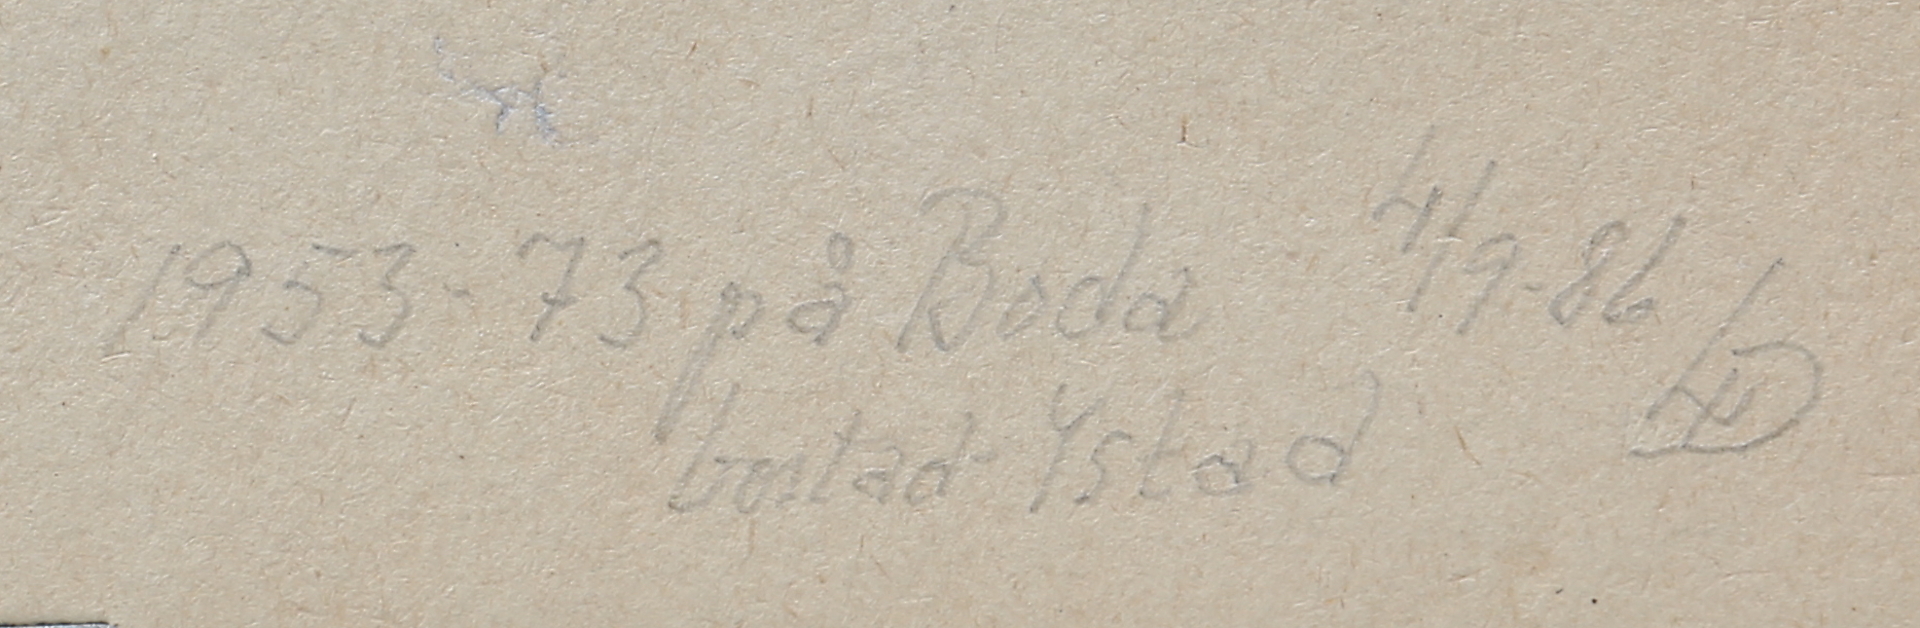 1953-73 på Boda 4/9-86
bostad Ystad